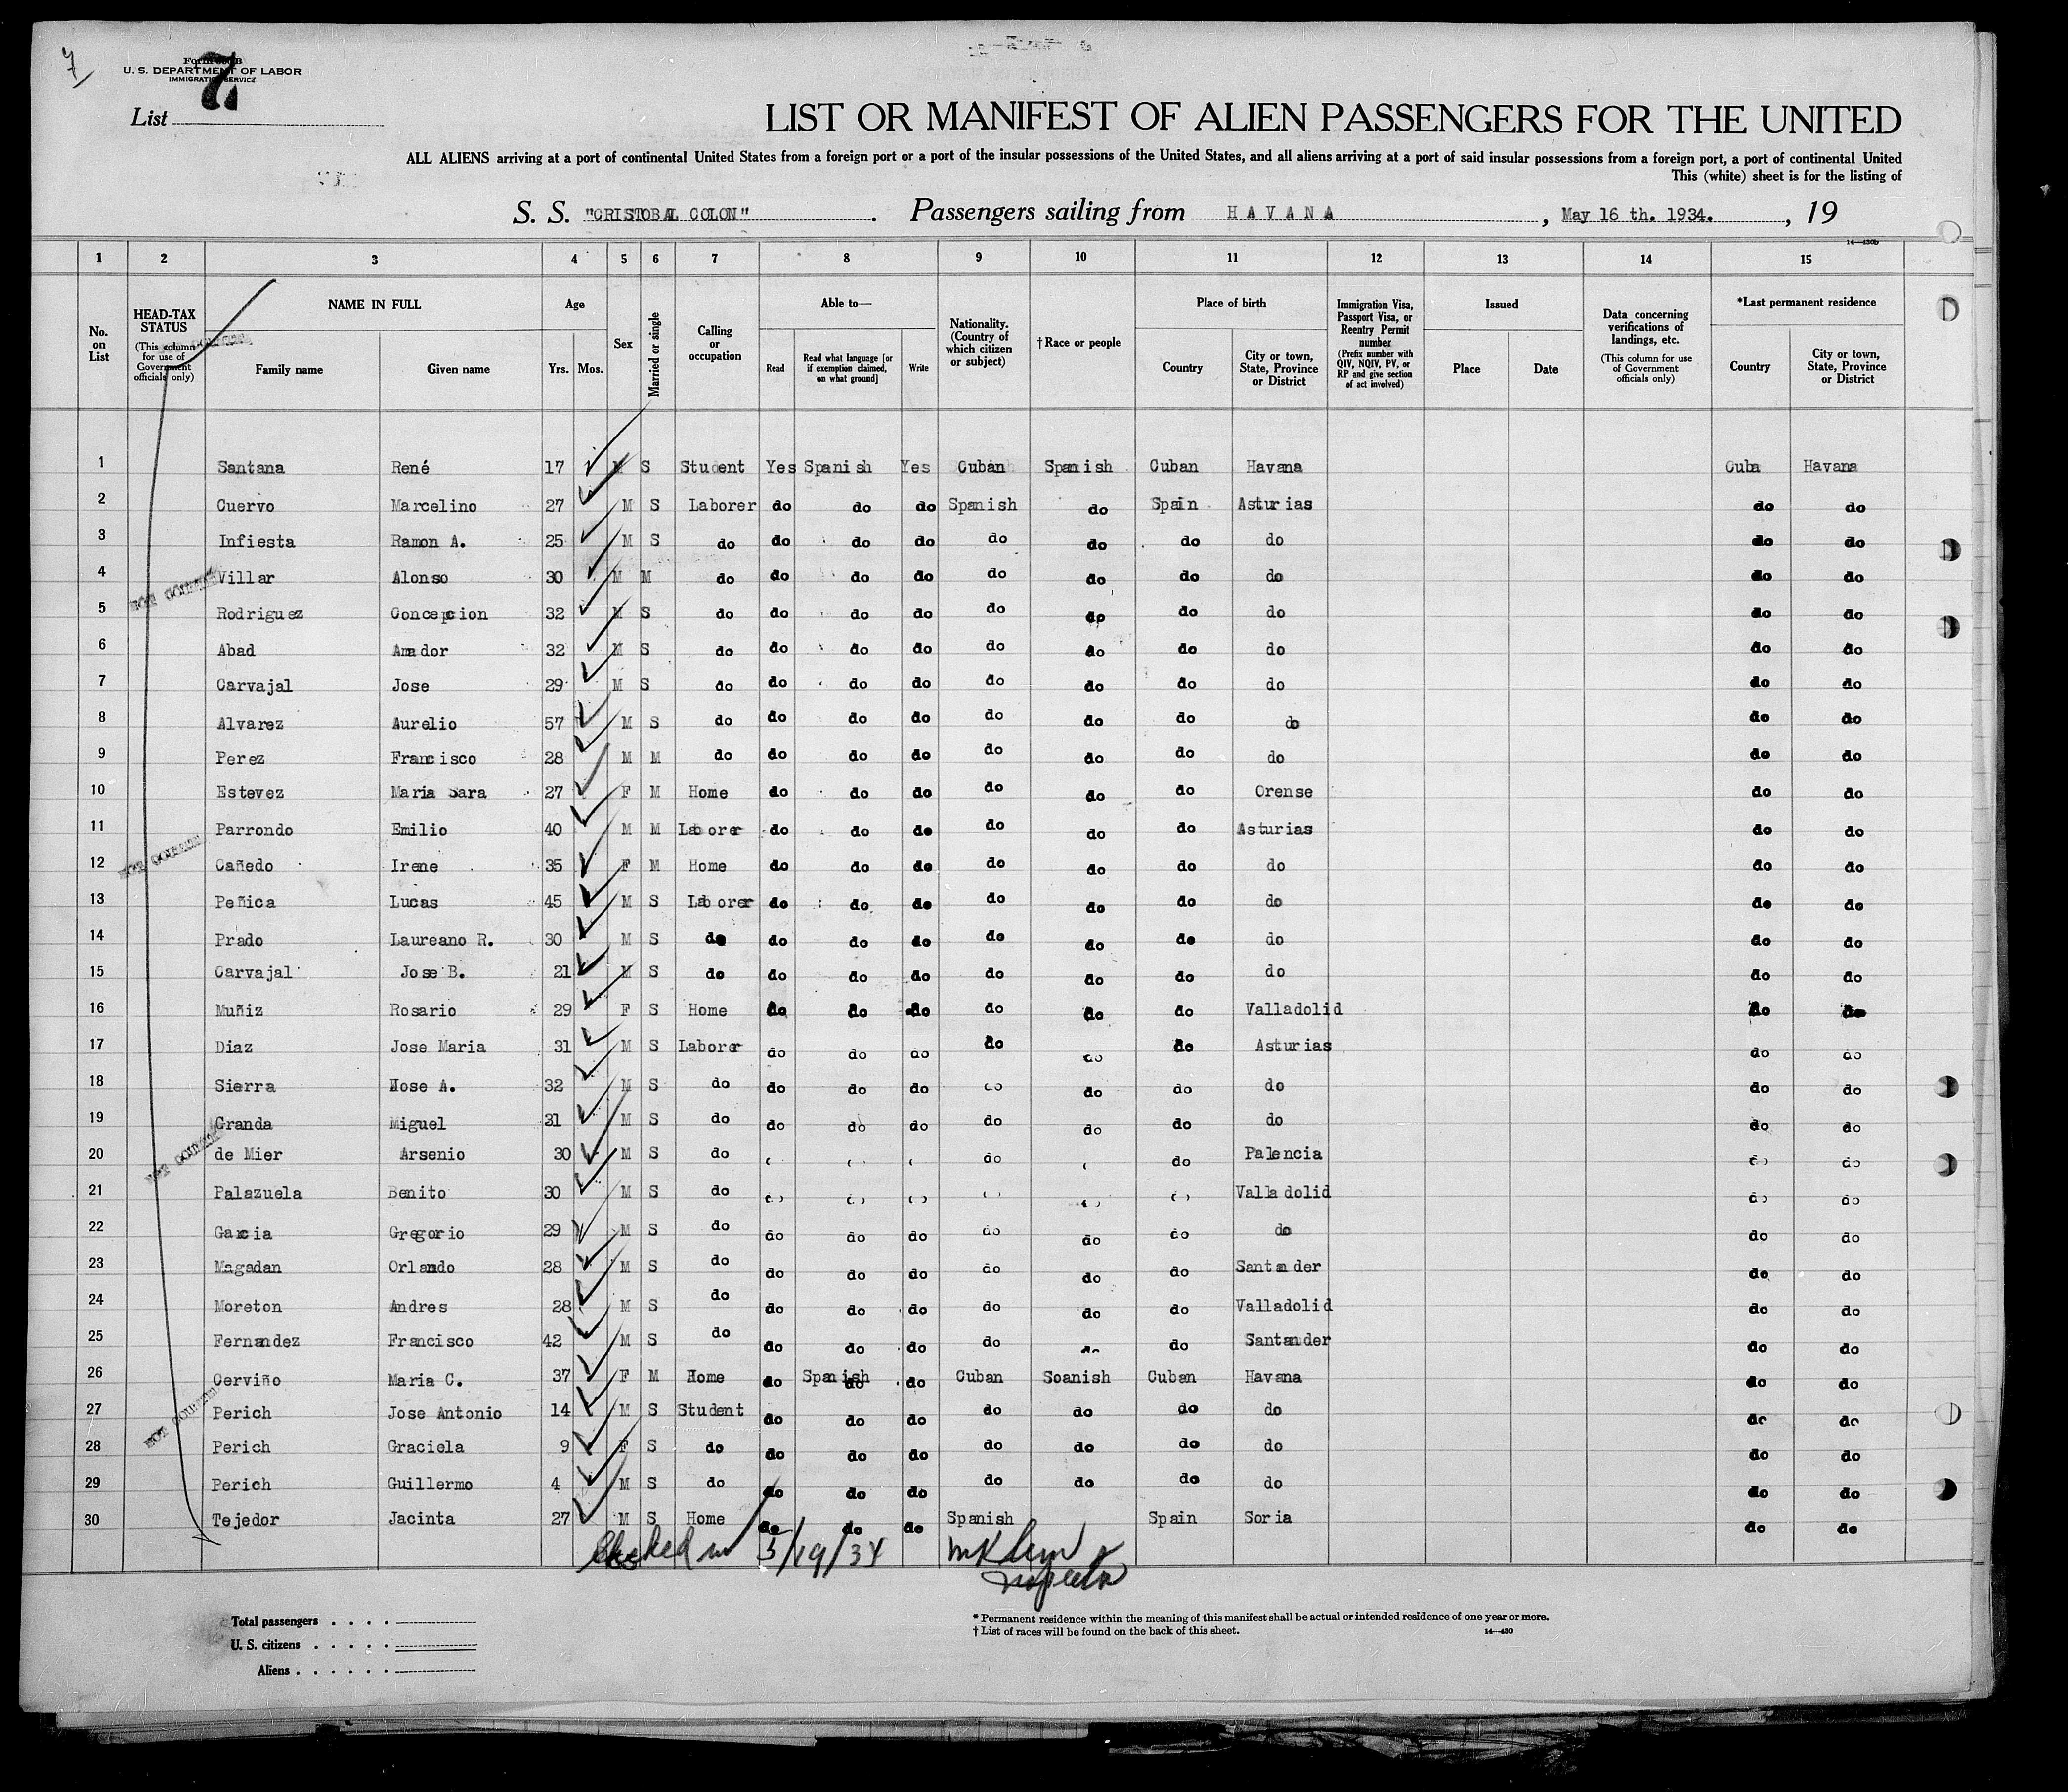 7
Form 500 B
U. S. DEPARTMENT OF LABOR
IMMIGRATION SERVICE
7
List
LIST OR MANIFEST OF ALIEN PASSENGERS FOR THE UNITED
ALL ALIENS arriving at a port of continental United States from a foreign port or a port of the insular possessions of the United States, and all aliens arriving at a port of said insular possessions from a foreign port, a port of continental United
This (white) sheet is for the listing of
S. S. "CRISTOBAL COLON". Passengers sailing from HAVANA, May 16 th. 1934., 19
14—430b
1 2 3 4 5 6 7 8 9 10 11 12 13 14 15
No. on List
HEAD-TAX STATUS (This column for use of Government officials only)
NAME IN FULL Family name Given name
Age Yrs. Mos.
Sex
Married or single
Calling or occupation
Able to— Read Read what language [or if exemption claimed, on what ground] Write
Nationality. (Country of which citizen or subject)
†Race or people
Place of birth Country City or town, State, Province or District
Immigration Visa, Passport Visa, or Reentry Permit number (Prefix number with QIV, NQIV, PV, or RP and give section of act involved)
Issued Place Date
Data concerning verifications of landings, etc. (This column for use of Government officials only)
*Last permanent residence Country City or town, State, Province or District
1 Santana René 17 M S Student Yes Spanish Yes Cuban Spanish Cuban Havana Cuba Havana
2 Cuervo Marcelino 27 M S Laborer do do do Spanish do Spain Asturias do do
3 Infiesta Ramon A. 25 M S do do do do do do do do do do
4 Villar Alonso 30 M M do do do do do do do do do do
5 Rodriguez Concepcion 32 M S do do do do do do do do do do
6 Abad Amador 32 M S do do do do do do do do do do
7 Carvajal Jose 29 M S do do do do do do do do do do
8 Alvarez Aurelio 57 M S do do do do do do do do do do
9 Perez Francisco 28 M M do do do do do do do do do do
10 Estevez Maria Sara 27 F M Home do do do do do do Orense do do
11 Parrondo Emilio 40 M M Laborer do do do do do do Asturias do do
12 Cañedo Irene 35 F M Home do do do do do do do do do
13 Peñica Lucas 45 M S Laborer do do do do do do do do do
14 Prado Laureano R. 30 M S do do do do do do do do do do
15 Carvajal Jose B. 21 M S do do do do do do do do do do
16 Muñiz Rosario 29 F S Home do do do do do do Valladolid do do
17 Diaz Jose Maria 31 M S Laborer do do do do do do Asturias do do
18 Sierra Hose A. 32 M S do do do do do do do do do do
19 Granda Miguel 31 M S do do do do do do do do do do
20 de Mier Arsenio 30 M S do do do Palencia do do
21 Palazuela Benito 30 M S do Valladolid do do
22 Garcia Gregorio 29 M S do do do do do do do do do do
23 Magadan Orlando 28 M S do do do do do do do Santander do do
24 Moreton Andres 28 M S do do do do do do do Valladolid do do
25 Fernandez Francisco 42 M S do do do do do do do Santander do do
26 Cerviño Maria C. 37 F M Home do Spanish do do Cuban Soanish Cuban Havana do do
27 Perich Jose Antonio 14 M S Student do do do do do do do do do
28 Perich Graciela 9 F S do do do do do do do do do do
29 Perich Guillermo 4 M S do do do do do do do do do do
30 Tejedor Jacinta 27 M S Home do do do Spanish Spain Soria do do
Checked in 5/19/34
Total passengers
U. S. citizens
Aliens
* Permanent residence within the meaning of this manifest shall be actual or intended residence of one year or more.
† List of races will be found on the back of this sheet.
14—430